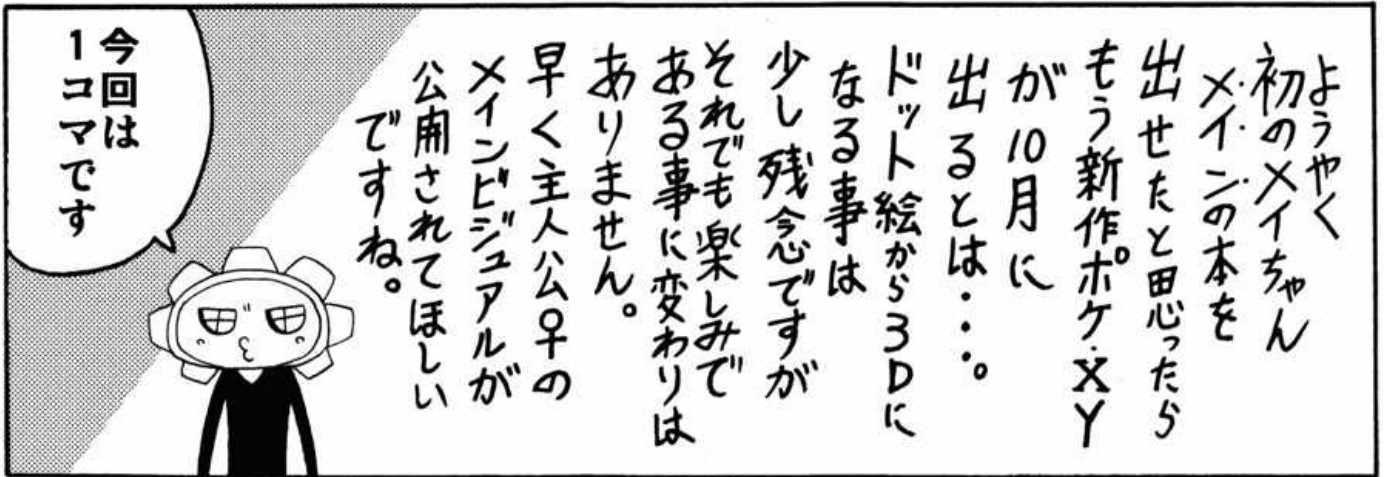 ようやく
初のメイちゃん
メインの本を
出せたと思ったら
もう新作ポケ・XY
が10月に
出るとは・・・。
ドット絵から3Dに
なる事は
少し残念ですが
それでも楽しみで
ある事に変わりは
ありません。
早く主人公♀の
メインビジュアルが
公開されてほしい
ですね。
今回は
1コマです